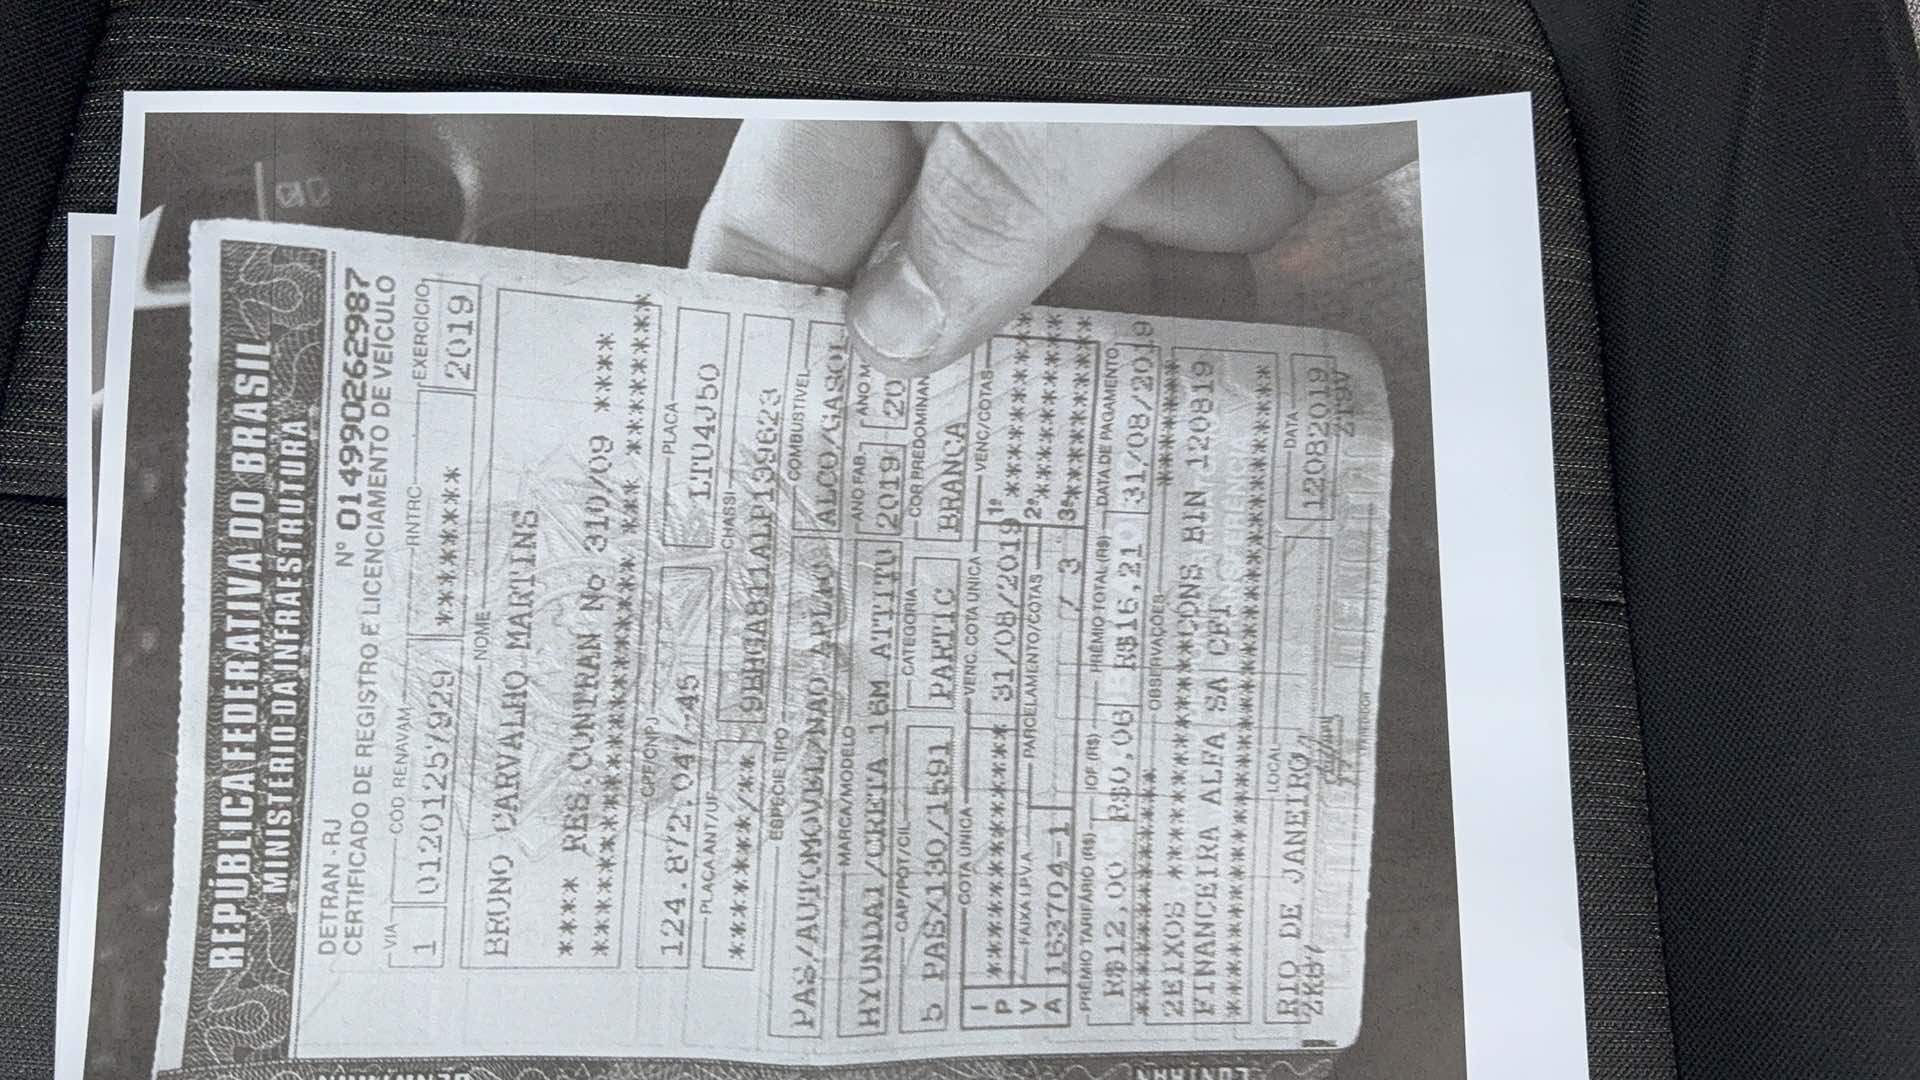 REPÚBLICA FEDERATIVA DO BRASIL
MINISTÉRIO DA INFRAESTRUTURA
DETRAN - RJ Nº 014990262987
CERTIFICADO DE REGISTRO E LICENCIAMENTO DE VEÍCULO
VIA COD RENAVAM RNTRC EXERCÍCIO
1 01201257929 ******** 2019
NOME
BRUNO CARVALHO MARTINS
**** RES.CONTRAN No 310/09 ****
CPF/CNPJ PLACA
124.872.047-45 LTU4J50
PLACA ANT/UF CHASSI
*******/** 9BHGA811ALP139623
ESPÉCIE TIPO COMBUSTÍVEL
PAS/AUTOMOVEL/NAO APLIC ALCO/GASOL
MARCA/MODELO ANO FAB. ANO M
HYUNDAI/CRETA 16M ATTITU 2019 20
CAP/POT/CIL CATEGORIA COR PREDOMINAN
5 PAS/130/1591 PARTIC BRANCA
I P V A
COTA UNICA VENC. COTA UNICA VENC/COTAS
31/08/2019 1ª
FAIXA I.P.V.A. PARCELAMENTO/COTAS 2ª
163704-1 / 3 3ª
PRÊMIO TARIFÁRIO (R$) IOF (R$) PRÊMIO TOTAL (R$) DATA DE PAGAMENTO
R$12,00 R$0,06 R$16,21 31/08/2019
OBSERVAÇÕES
2EIXOS
BIN 120819
FINANCEIRA ALFA SA CFI
LOCAL DATA
RIO DE JANEIRO, 12082019